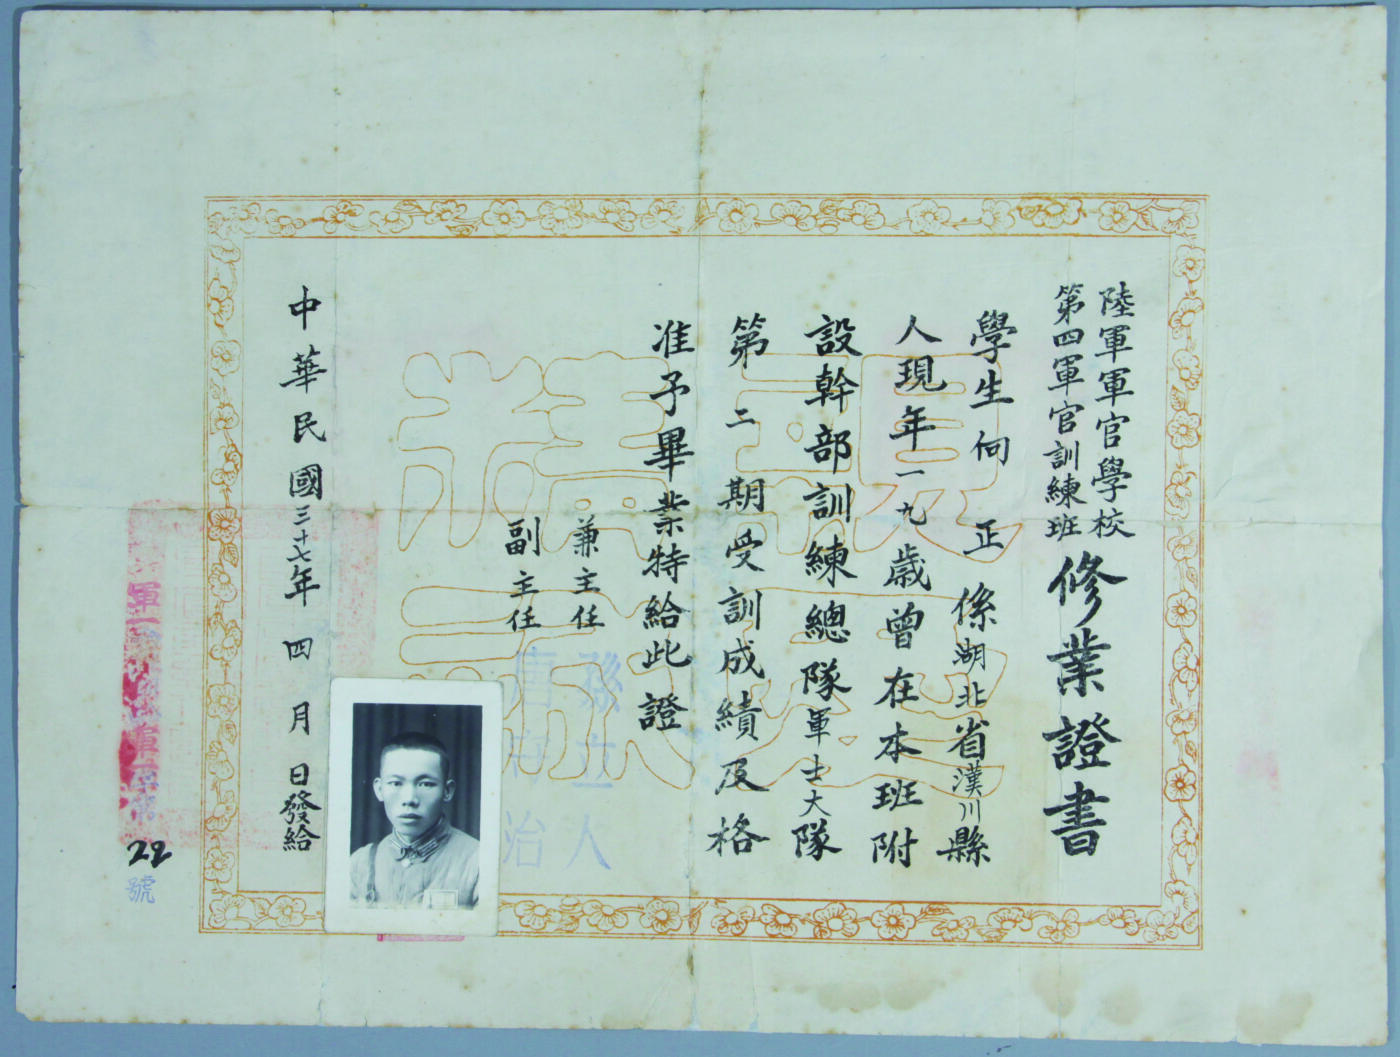 陸軍軍官學校
第四軍官訓練班
修業證書
學生向正係湖北省漢川縣
人現年一九歲曾在本班附
設幹部訓練總隊軍士大隊
第二期受訓成績及格
准予畢業特給此證
兼主任
孫立人
副主任
唐守治
中華民國三十七年四月日發給
22
號
親愛精誠